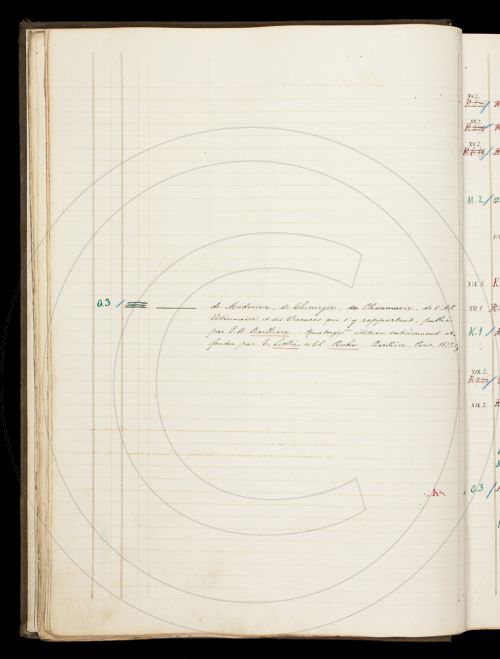 Q.3 / de Médecine, de Chirurgie, de Pharmacie, de l'Art
Vétérinaire et des Sciences qui s'y rapportent, publié
par J.B. Baillière. Quatorzième édition entièrement re-
fondue par E. Littré et Ch. Robin. Baillière, Paris, 1877.
XII.2.
XII.2
XII.2
M.2/
XII.1.
K.1/
XIX.2.
XIX.2.
Q.3/